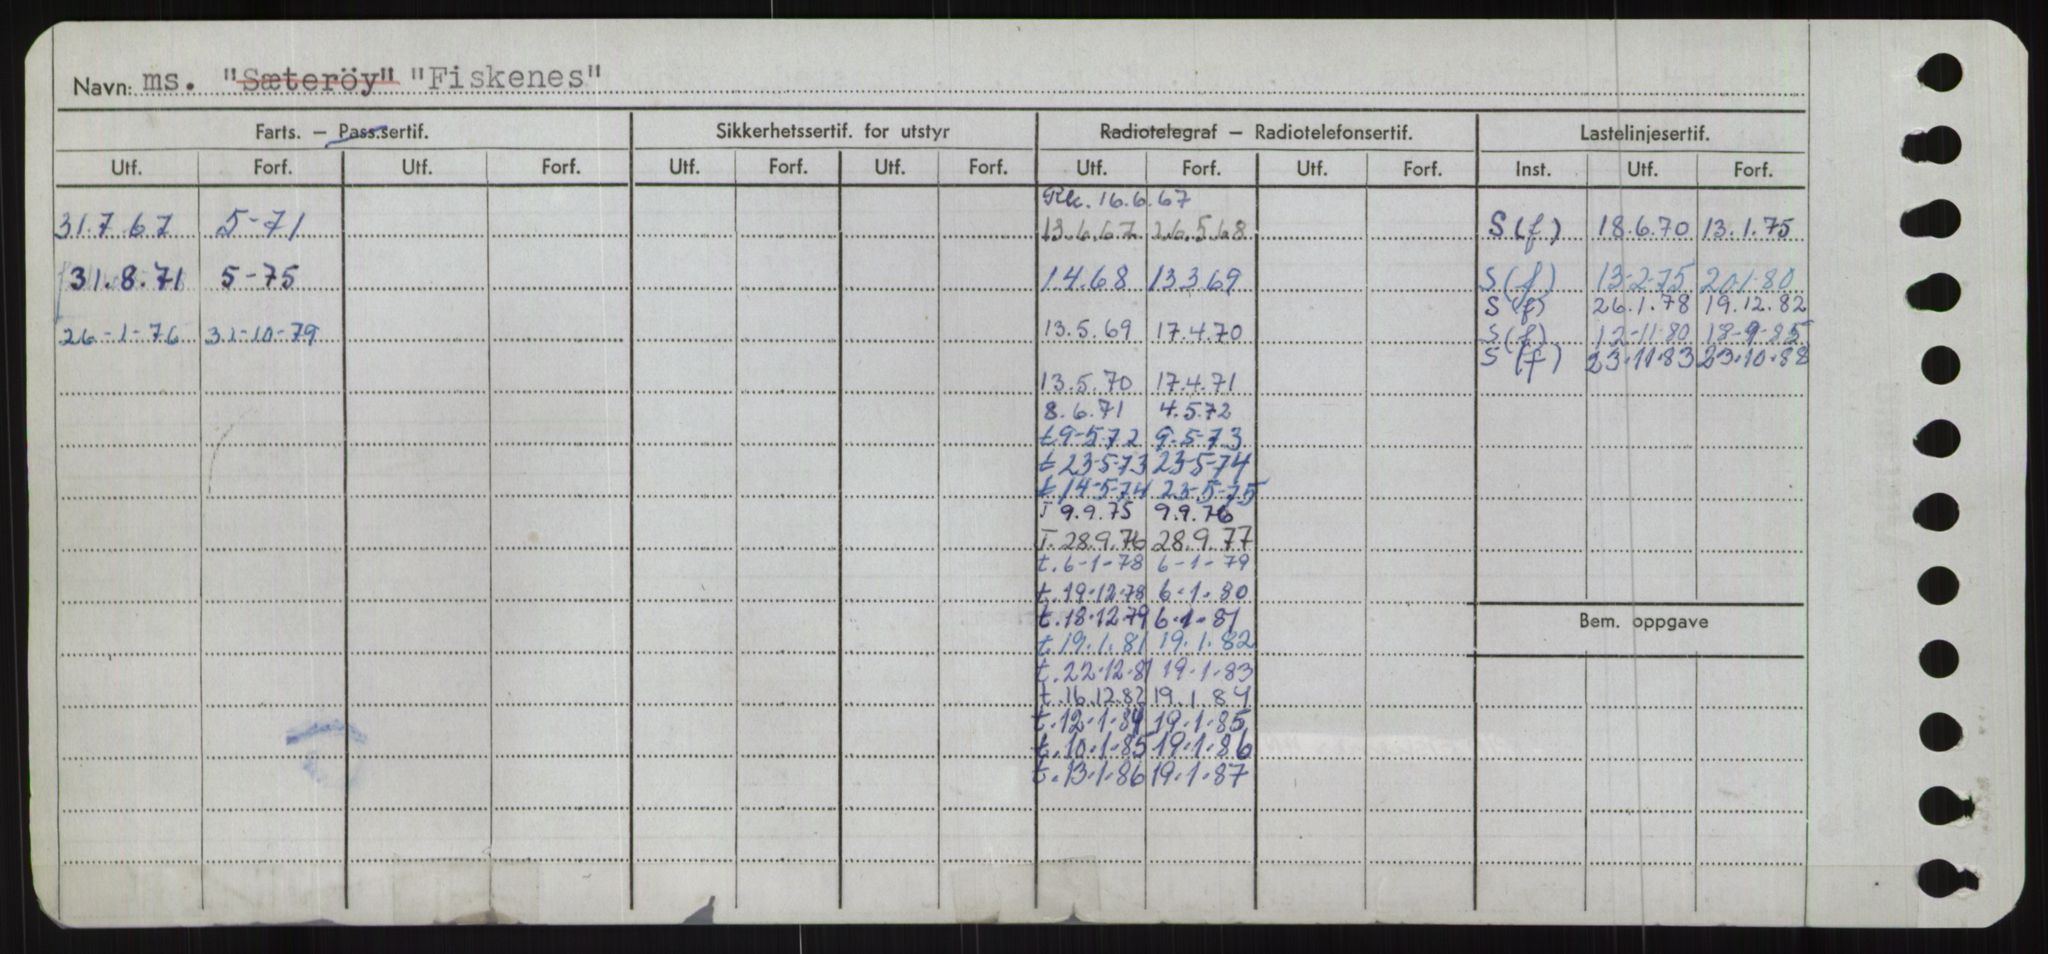 Navn: ms. "Sæteröy" "Fiskenes"
Farts. — Pass.sertif. Sikkerhetssertif. for utstyr Radiotelegraf — Radiotelefonsertif. Lastelinjesertif.
Utf. Forf. Utf. Forf. Utf. Forf. Utf. Forf. Utf. Forf. Utf. Forf. Inst. Utf. Forf.
16.6.67
31.7.67 5-71 13.6.67 26.5.68 S(f) 18.6.70 13.1.75
31.8.71 5-75 1.4.68 13.3.69 S(f) 13-2-75 20.1.80
S(f) 26.1.78 19.12.82
26-1-76 31-10-79 13.5.69 17.4.70 S(f) 12-11-80 18-9-85
S(f) 23.11.83 23.10.88
13.5.70 17.4.71
8.6.71 4.5.72
t.9-5-72 9-5-73
t 23-5-73 23-5-74
t 14-5-74 23-5-75
T 9.9.75 9.9.76
T. 28.9.76 28.9.77
t. 6-1-78 6-1-79
t. 19.12.78 6.1.80
t. 18.12.79 6.1.81
t. 19.1.81 19.1.82
t. 22.12.81 19.1.83
t. 16.12.82 19.1.84
t. 12.1.84 19.1.85
t. 10.1.85 19.1.86
t. 13.1.86 19.1.87
Bem. oppgave